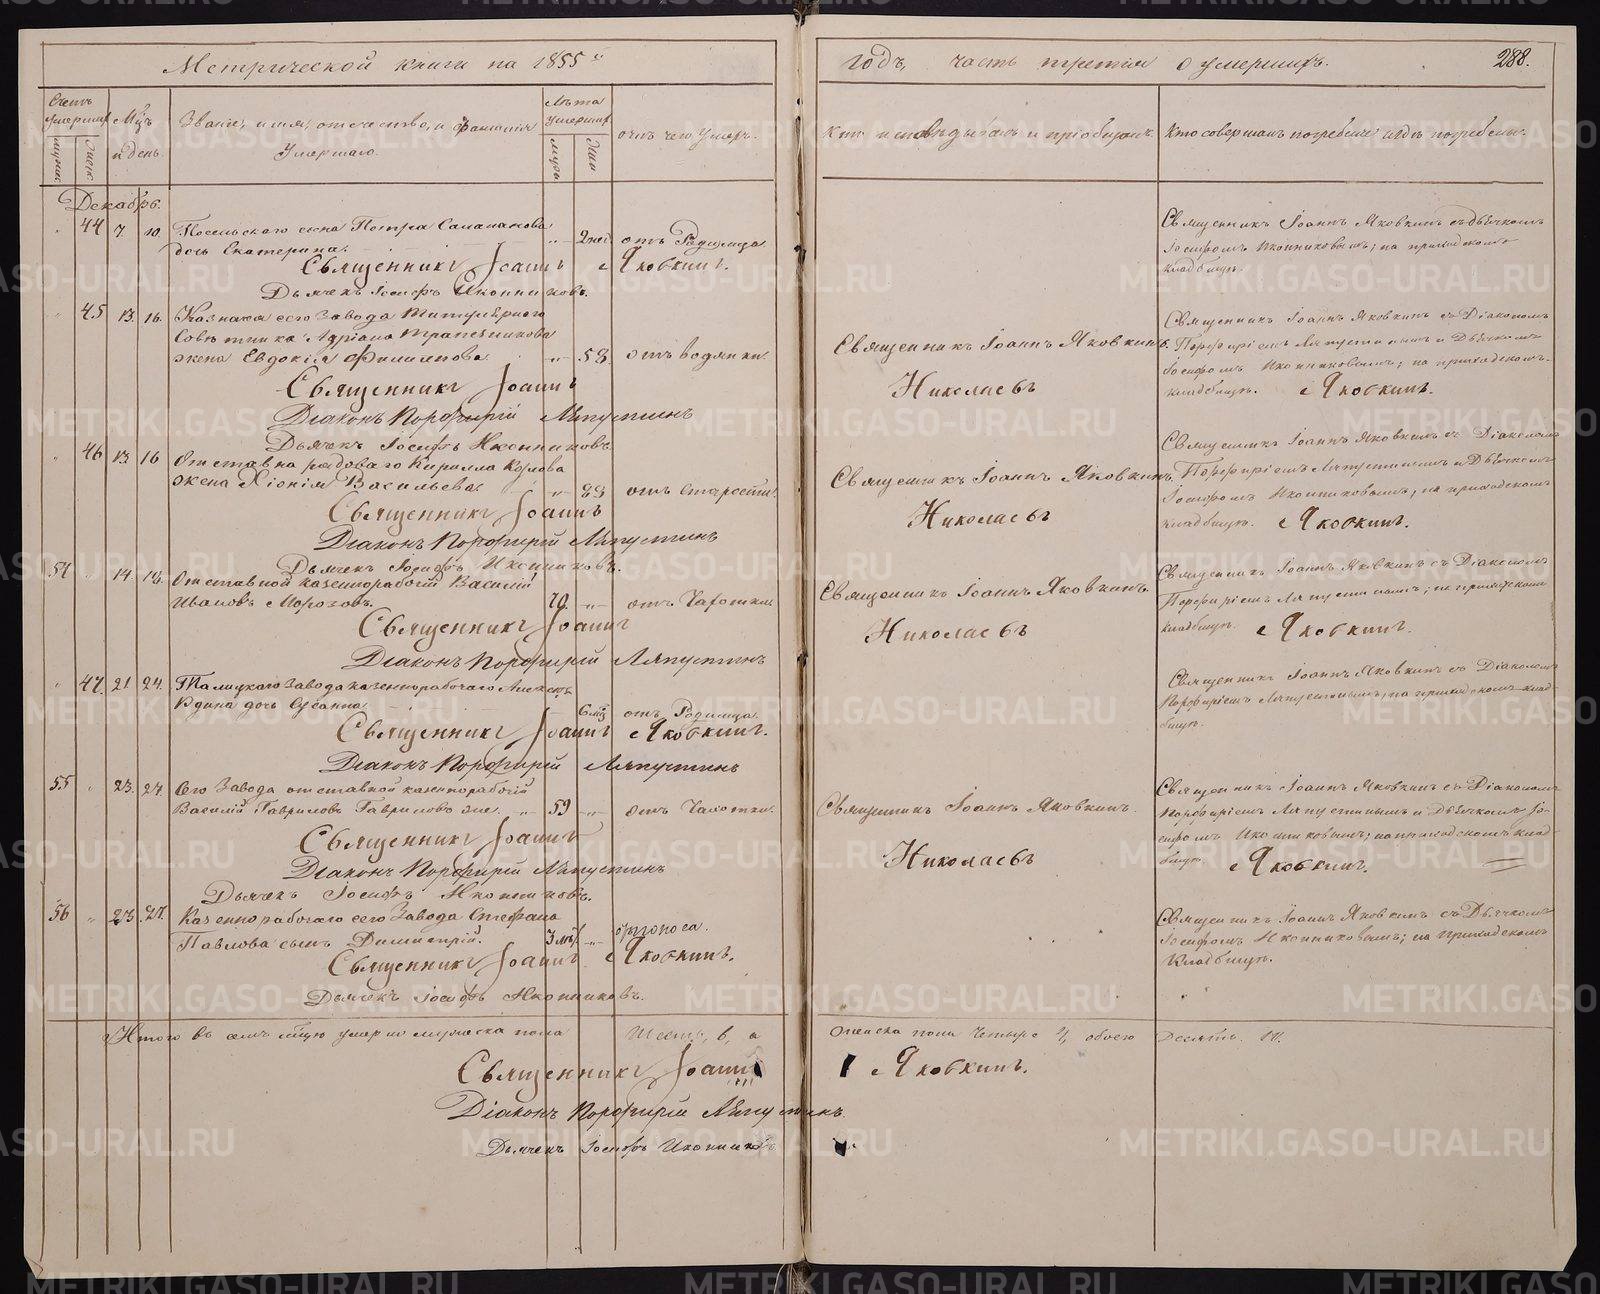 Метрической книги на 1855й
годъ, часть третія о умершихъ.
288.
Счетъ умершихъ
Мужес.
Женск.
Мцъ и день.
Званіе, имя, отчество, и фамилія
Умершаго.
Лѣта умершихъ
Муж
Жен
отъ чего умеръ.
кто исповѣдывалъ и пріобщалъ.
Кто совершалъ погребеніе и гдѣ погребены.
Декабрь.
44 7. 10. Посельскаго сына Петра
дочь Екатерина. 2 нед. отъ Родимца
Священникъ Іоаннъ Яковкинъ.
Дьячекъ Іосифъ Иконниковъ.
Священникъ Іоаннъ Яковкинъ съ дьячкомъ
Іосифомъ Иконниковымъ; на приходскомъ
кладбищѣ.
45 13. 16. Казначея сего Завода Титулярнаго
Совѣтника Адріана Трапезникова
жена Евдокія Филиппова. 58. отъ водянки.
Священникъ Іоаннъ
Діаконъ Порфирій Ляпустинъ
Дьячекъ Іосифъ Иконниковъ.
Священникъ Іоаннъ Яковкинъ.
Николаевъ
Священникъ Іоаннъ Яковкинъ съ Діакономъ
Порфиріемъ Ляпустинымъ и Дьячкомъ
Іосифомъ Иконниковымъ; на приходскомъ
кладбищѣ. Яковкинъ.
46 13 16 Отставна рядоваго Кирилла Козлова
жена Хіонія Васильева. 88 отъ старости.
Священникъ Іоаннъ
Діаконъ Порфирій Ляпустинъ
Дьячекъ Іосифъ Иконниковъ.
Священникъ Іоаннъ Яковкинъ.
Николаевъ
Священникъ Іоаннъ Яковкинъ съ Діакономъ
Порфиріемъ Ляпустинымъ и Дьячкомъ
Іосифомъ Иконниковымъ; на приходскомъ
кладбищѣ. Яковкинъ.
54 14. 16. Отставной казеннорабочій Василій
Ивановъ Морозовъ. 70. отъ Чахотки.
Священникъ Іоаннъ
Діаконъ Порфирій Ляпустинъ
Священникъ Іоаннъ Яковкинъ.
Николаевъ
Священникъ Іоаннъ Яковкинъ съ Діакономъ
Порфиріемъ Ляпустинымъ; на приходскомъ
кладбищѣ. Яковкинъ.
47. 21 24. Талицкаго Завода казеннорабочаго
дочь Сусанна. 6 мц отъ Родимца.
Священникъ Іоаннъ Яковкинъ.
Діаконъ Порфирій Ляпустинъ
Священникъ Іоаннъ Яковкинъ съ Діакономъ
Порфиріемъ Ляпустинымъ; на приходскомъ клад-
бищѣ.
55 23. 27. Сего Завода отставной казеннорабочій
Василій Гавриловъ 59 отъ Чахотки.
Священникъ Іоаннъ
Діаконъ Порфирій Ляпустинъ
Дьячекъ Іосифъ Иконниковъ.
Священникъ Іоаннъ Яковкинъ.
Николаевъ
Священникъ Іоаннъ Яковкинъ съ Діакономъ
Порфиріемъ Ляпустинымъ и Дьячкомъ Іо-
сифомъ Иконниковымъ; на приходскомъ клад-
бищѣ. Яковкинъ.
56 23 27. Казеннорабочаго сего Завода Стефана
Павлова сынъ Димитрій. 3
Священникъ Іоаннъ Яковкинъ.
Дьячекъ Іосифъ Иконниковъ.
Священникъ Іоаннъ Яковкинъ съ Дьячкомъ
Іосифомъ Иконниковымъ; на приходскомъ
кладбищѣ.
Итого въ семъ мцѣ умерло мужеска пола Шесть, 6, а
женска пола Четыре 4, обоего Десять. 10.
Священникъ Іоаннъ Яковкинъ.
Діаконъ Порфирій Ляпустинъ.
Дьячекъ Іосифъ Иконниковъ.
METRIKI.GASO-URAL.RU